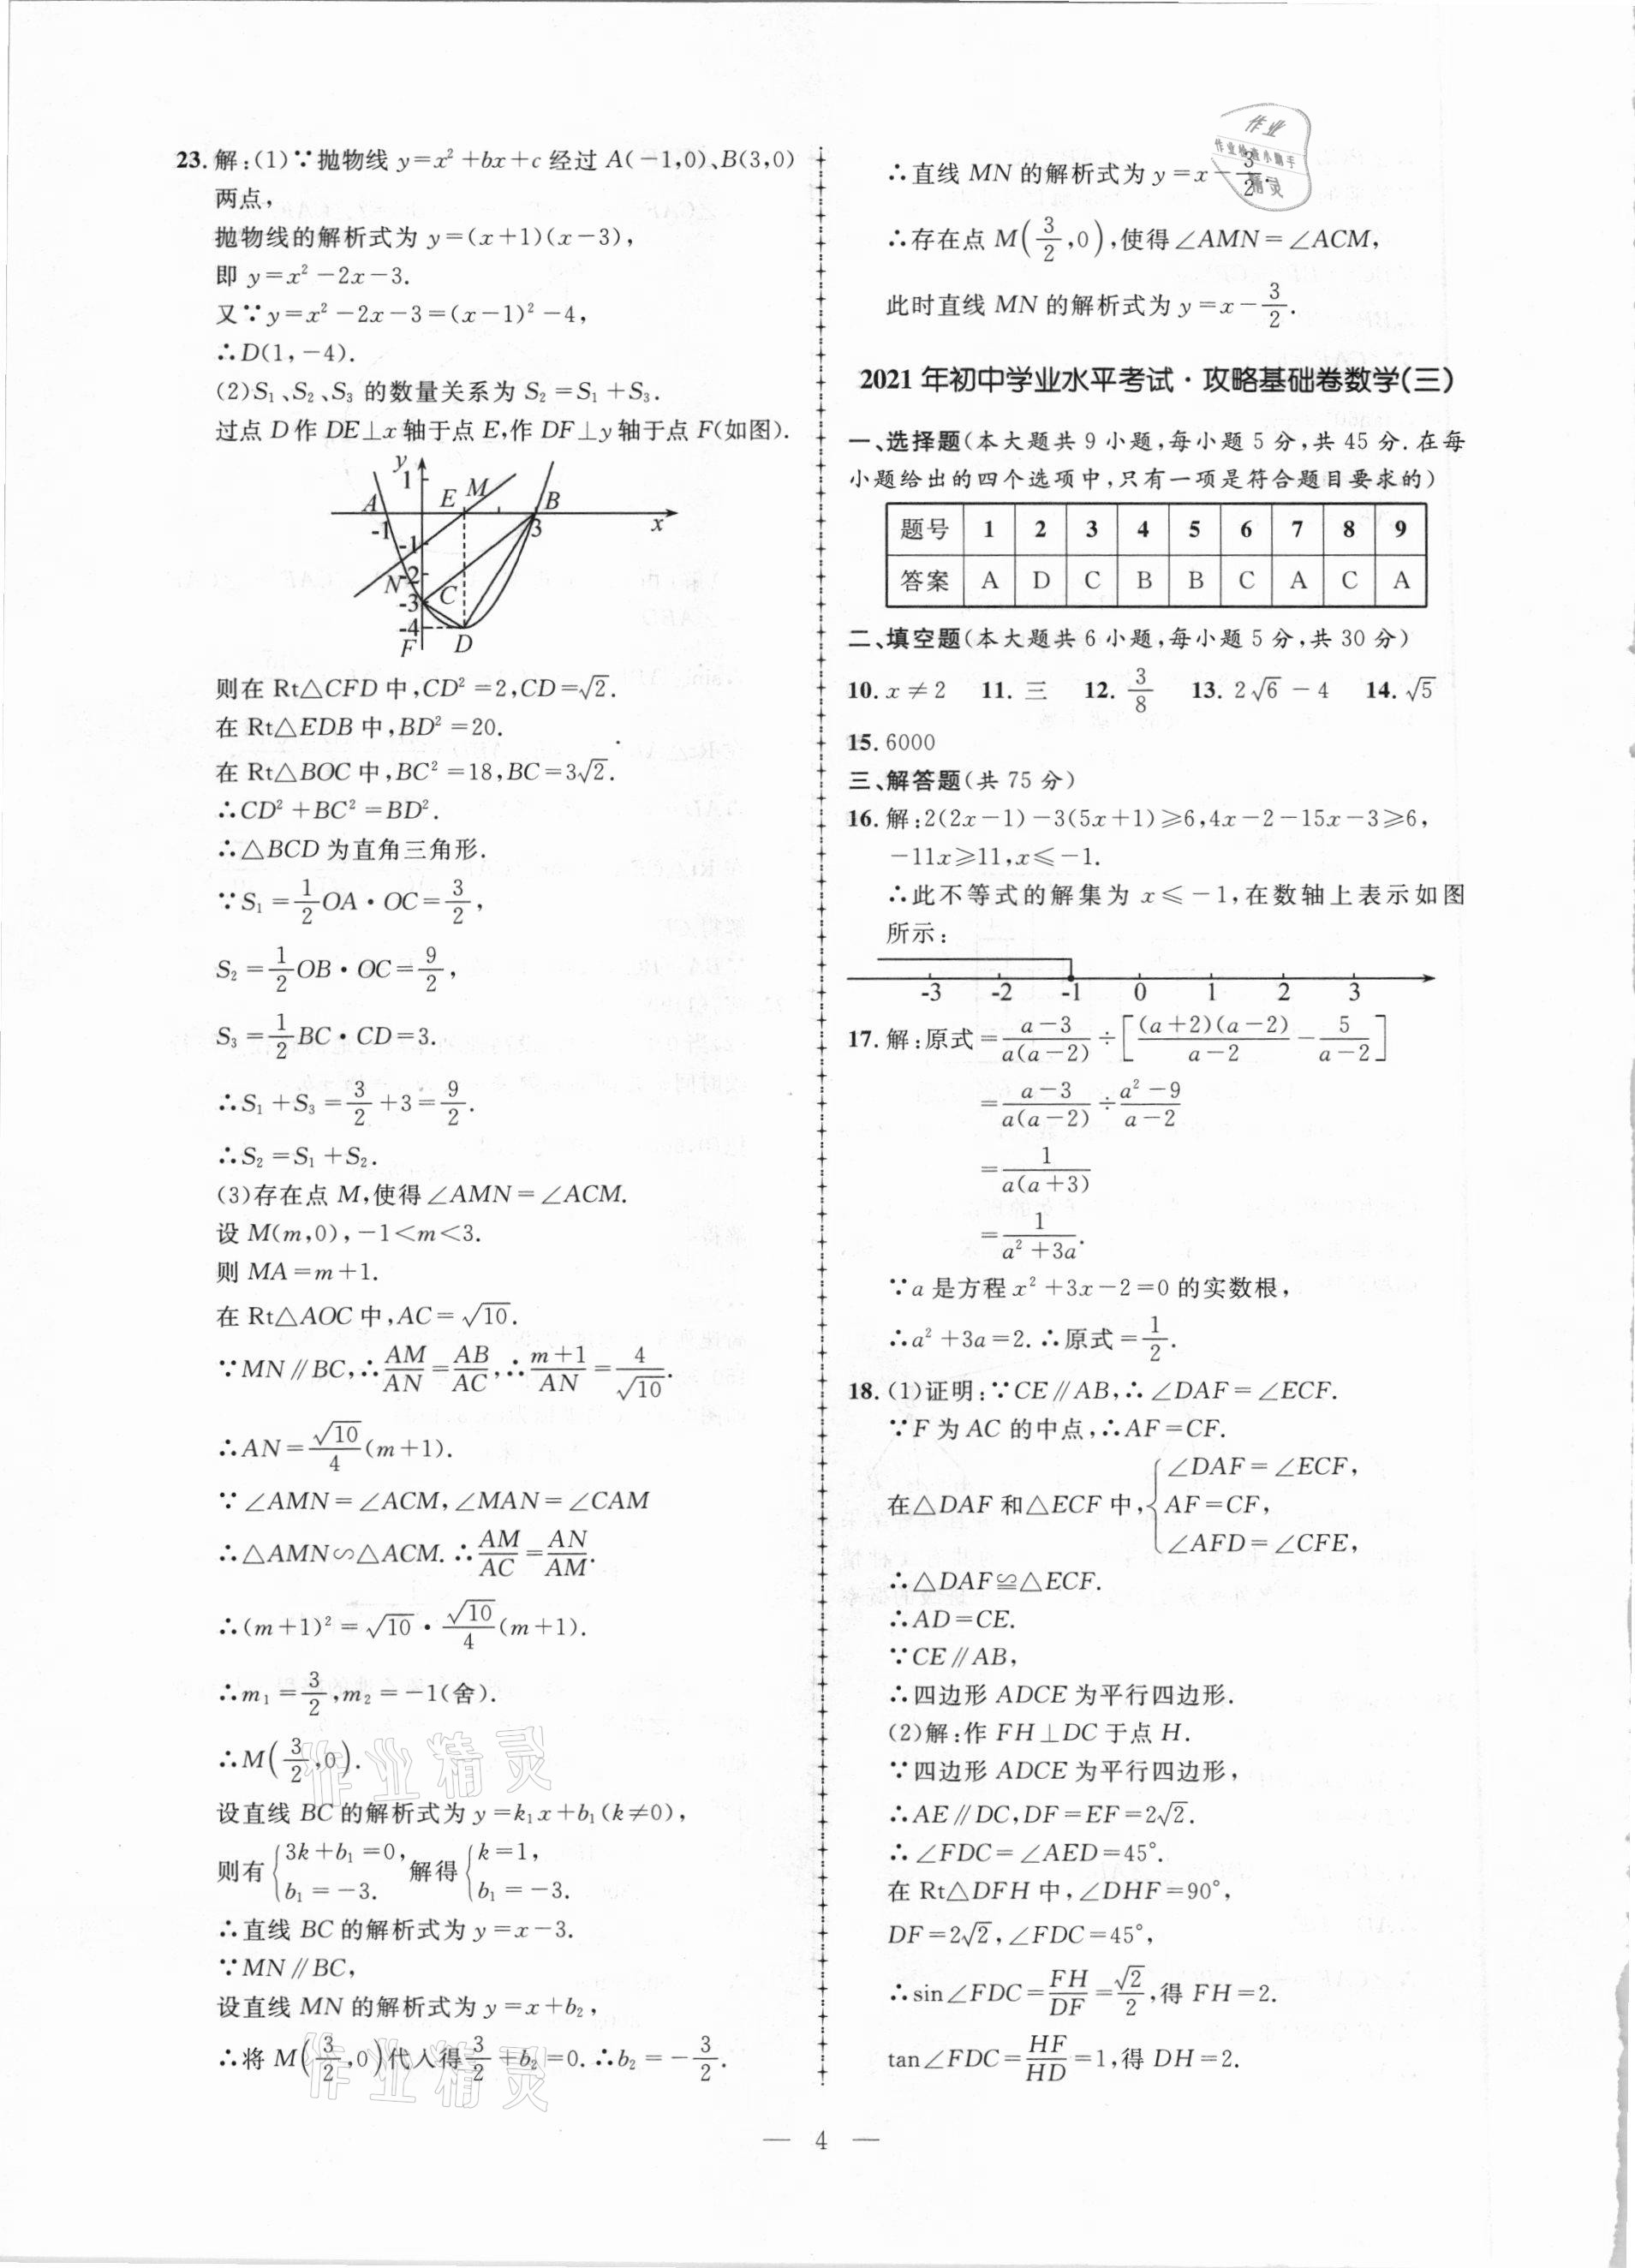 23. 解:(1)∵抛物线 y=x²+bx+c 经过 A(-1,0)、B(3,0)
两点,
抛物线的解析式为 y=(x+1)(x-3),
即 y=x²-2x-3.
又∵y=x²-2x-3=(x-1)²-4,
∴D(1,-4).
(2)S₁、S₂、S₃ 的数量关系为 S₂=S₁+S₃.
过点 D 作 DE⊥x 轴于点 E,作 DF⊥y 轴于点 F(如图).
y
1
A E M B
-1 3 x
-1
N -2
-3 C
-4
F D
则在 Rt△CFD 中,CD²=2,CD=√2.
在 Rt△EDB 中,BD²=20.
在 Rt△BOC 中,BC²=18,BC=3√2.
∴CD²+BC²=BD².
∴△BCD 为直角三角形.
∵S₁=1/2 OA·OC=3/2,
S₂=1/2 OB·OC=9/2,
S₃=1/2 BC·CD=3.
∴S₁+S₃=3/2+3=9/2.
∴S₂=S₁+S₂.
(3)存在点 M,使得∠AMN=∠ACM.
设 M(m,0),-1<m<3.
则 MA=m+1.
在 Rt△AOC 中,AC=√10.
∵MN∥BC,∴AM/AN=AB/AC,∴(m+1)/AN=4/√10.
∴AN=√10/4(m+1).
∵∠AMN=∠ACM,∠MAN=∠CAM
∴△AMN∽△ACM.∴AM/AC=AN/AM.
∴(m+1)²=√10·√10/4(m+1).
∴m₁=3/2,m₂=-1(舍).
∴M(3/2,0).
设直线 BC 的解析式为 y=k₁x+b₁(k≠0),
则有{3k+b₁=0, b₁=-3. 解得{k=1, b₁=-3.
∴直线 BC 的解析式为 y=x-3.
∵MN∥BC,
设直线 MN 的解析式为 y=x+b₂,
∴将 M(3/2,0)代入得 3/2+b₂=0.∴b₂=-3/2.
作业
作业检查小助手
精灵
∴直线 MN 的解析式为 y=x-3/2.
∴存在点 M(3/2,0),使得∠AMN=∠ACM,
此时直线 MN 的解析式为 y=x-3/2.
2021 年初中学业水平考试·攻略基础卷数学(三)
一、选择题(本大题共 9 小题,每小题 5 分,共 45 分.在每
小题给出的四个选项中,只有一项是符合题目要求的)
题号 1 2 3 4 5 6 7 8 9
答案 A D C B B C A C A
二、填空题(本大题共 6 小题,每小题 5 分,共 30 分)
10. x≠2 11. 三 12. 3/8 13. 2√6-4 14. √5
15. 6000
三、解答题(共 75 分)
16. 解:2(2x-1)-3(5x+1)≥6,4x-2-15x-3≥6,
-11x≥11,x≤-1.
∴此不等式的解集为 x≤-1,在数轴上表示如图
所示:
-3 -2 -1 0 1 2 3
17. 解:原式=(a-3)/(a(a-2))÷[(a+2)(a-2)/(a-2)-5/(a-2)]
=(a-3)/(a(a-2))÷(a²-9)/(a-2)
=1/(a(a+3))
=1/(a²+3a).
∵a 是方程 x²+3x-2=0 的实数根,
∴a²+3a=2.∴原式=1/2.
18. (1)证明:∵CE∥AB,∴∠DAF=∠ECF.
∵F 为 AC 的中点,∴AF=CF.
在△DAF 和△ECF 中,{∠DAF=∠ECF, AF=CF, ∠AFD=∠CFE,
∴△DAF≌△ECF.
∴AD=CE.
∵CE∥AB,
∴四边形 ADCE 为平行四边形.
(2)解:作 FH⊥DC 于点 H.
∵四边形 ADCE 为平行四边形,
∴AE∥DC,DF=EF=2√2.
∴∠FDC=∠AED=45°.
在 Rt△DFH 中,∠DHF=90°,
DF=2√2,∠FDC=45°,
∴sin∠FDC=FH/DF=√2/2,得 FH=2.
tan∠FDC=HF/HD=1,得 DH=2.
作业精灵
作业精灵
— 4 —